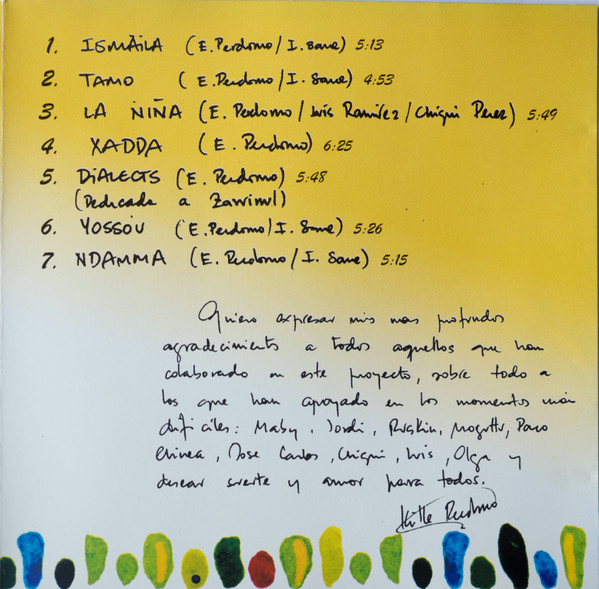 1. ISMÄILA (E. Perdomo/I. Sane) 5:13
2. TAMO (E. Perdomo/I. Sane) 4:53
3. LA NIÑA (E. Perdomo/Luis Ramirez/Chiqui Perez) 5:49
4. XADDA (E. Perdomo) 6:25
5. DIALECTS (E. Perdomo) 5:48
(Dedicada a Zawinul)
6. YOSSOU (E. Perdomo/I. Sane) 5:26
7. NDAMMA (E. Perdomo/I. Sane) 5:15
Quiero expresar mis mas profundos
agradecimientos a todos aquellos que han
colaborado en este proyecto, sobre todo a
los que han apoyado en los momentos más
dificiles: Maby, Jordi, Ruskin, Paco
Chinea, Jose Carlos, Chiqui, Luis, Olga y
desear suerte y amor para todos.
Perdomo